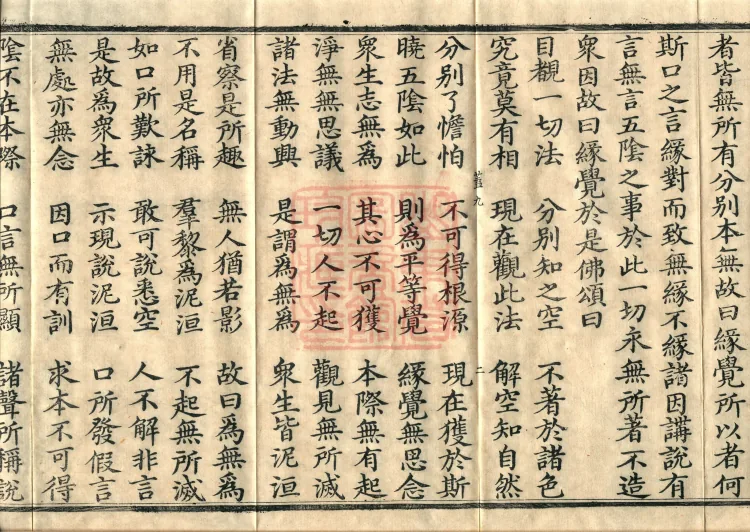 者皆無所有分別本無故曰緣覺所以者何
斯口之言緣對而致無緣不緣諸因講說有
言無言五陰之事於此一切永無所著不造
衆因故曰緣覺於是佛頌曰
目覩一切法 分別知之空 不著於諸色
究竟莫有相 現在觀此法 解空知自然
分別了憺怕 不可得根源 現在獲於斯
曉五陰如此 則為平等覺 緣覺無思念
衆生志無為 其心不可獲 本際無有起
淨無無思議 一切人不起 觀見無所滅
諸法無動興 是謂為無為 衆生皆泥洹
省察是所趣 無人猶若影 故曰為無為
不用是名稱 羣黎為泥洹 不起無所滅
如口所歎誦 敢可說悉空 人不解非言
是故為衆生 示現說泥洹 口所發假言
無處亦無念 因口而有訓 求本不可得
陰不在本際 口言無所顯 諸聲所稱說